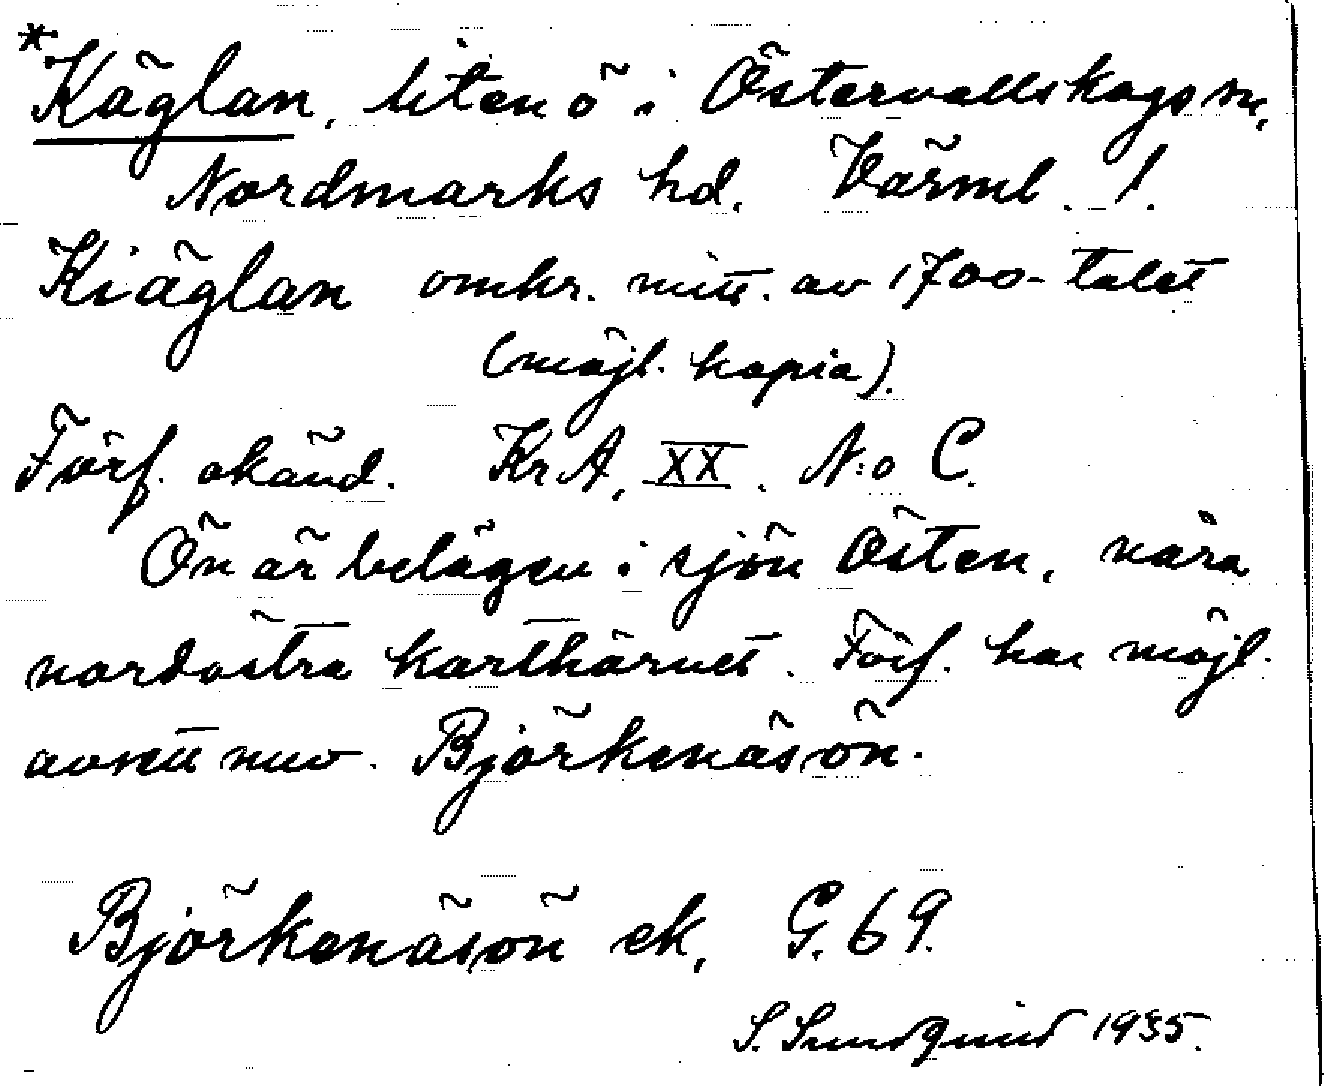 *Käglan, liten ö i Östervallskogs sn,
Nordmarks hd. Värml. !.
Kiäglan omkr. mitt. av 1700-talet
(möjl. kopia).
Förf. okänd. KrA, XX. N:o C.
Ön är belägen i sjön Östen, nära
nordöstra karthörnet. Förf. har möjl.
avsett nuv. Björkenäsön.
Björkenäsön ek, G. 69.
S. Sundquist 1935.